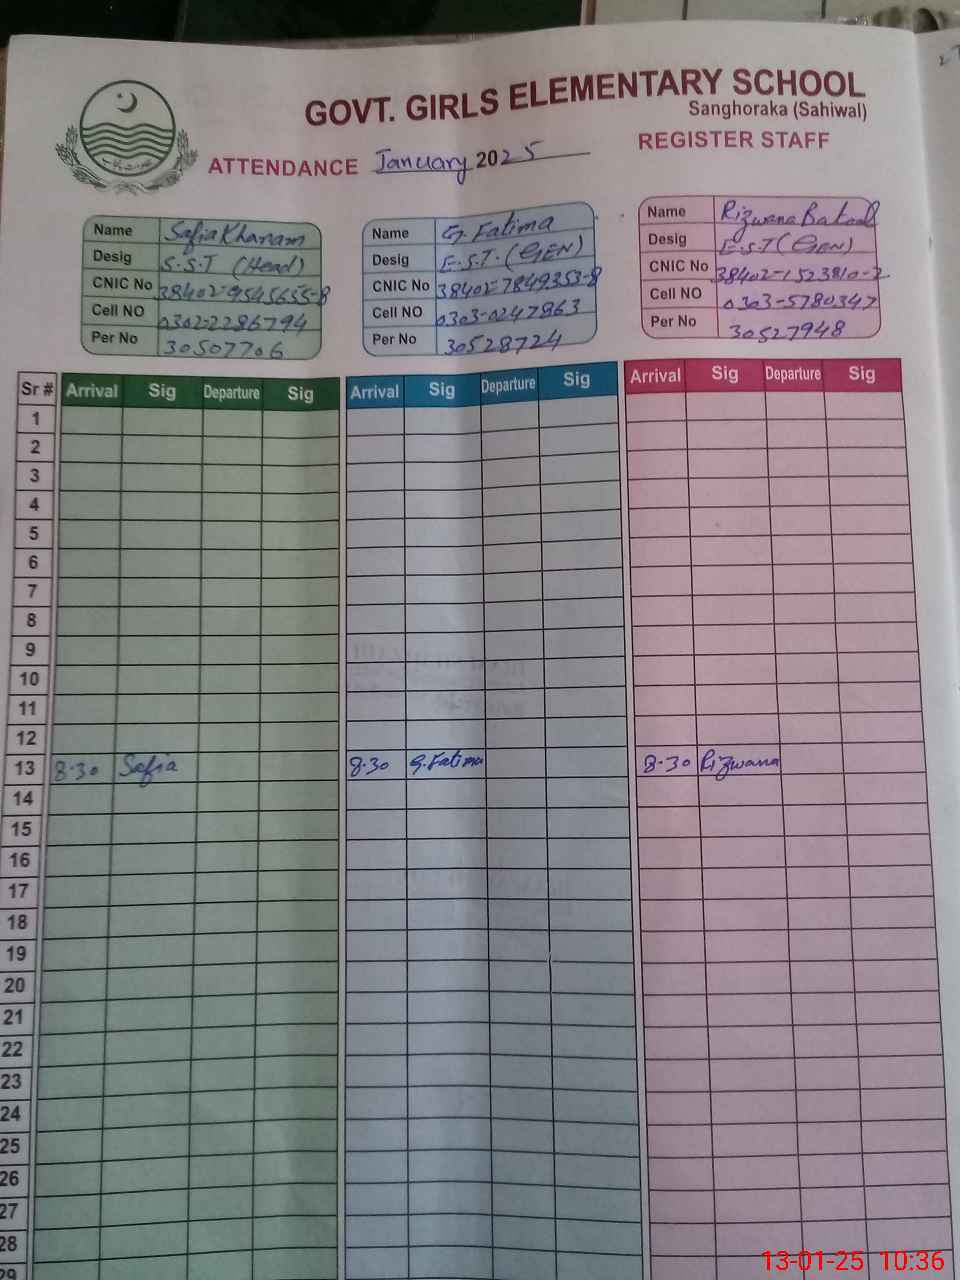 GOVT. GIRLS ELEMENTARY SCHOOL
Sanghoraka (Sahiwal)
ATTENDANCE January 2025 REGISTER STAFF
Name Safia Khanam
Desig S.S.T (Head)
CNIC No 38402-9545655-8
Cell NO 0302-2286794
Per No 30507706
Name G. Fatima
Desig E.S.T. (GEN)
CNIC No 38402-7849353-8
Cell NO 0303-0247863
Per No 30528724
Name Rizwana Batool
Desig E.S.T (GEN)
CNIC No 38402-1523810-2
Cell NO 0303-5780347
Per No 30527948
Sr # Arrival Sig Departure Sig Arrival Sig Departure Sig Arrival Sig Departure Sig
1
2
3
4
5
6
7
8
9
10
11
12
13 8.30 Safia 8.30 G.Fatima 8.30 Rizwana
14
15
16
17
18
19
20
21
22
23
24
25
26
27
28
29
13-01-25 10:36